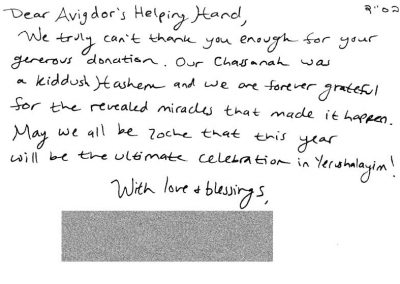 בס"ד
Dear Avigdor's Helping Hand,
We truly can't thank you enough for your
generous donation. Our Chassanah was
a kiddush Hashem and we are forever grateful
for the revealed miracles that made it happen.
May we all be zoche that this year
will be the ultimate celebration in Yerushalayim!
With love & blessings,